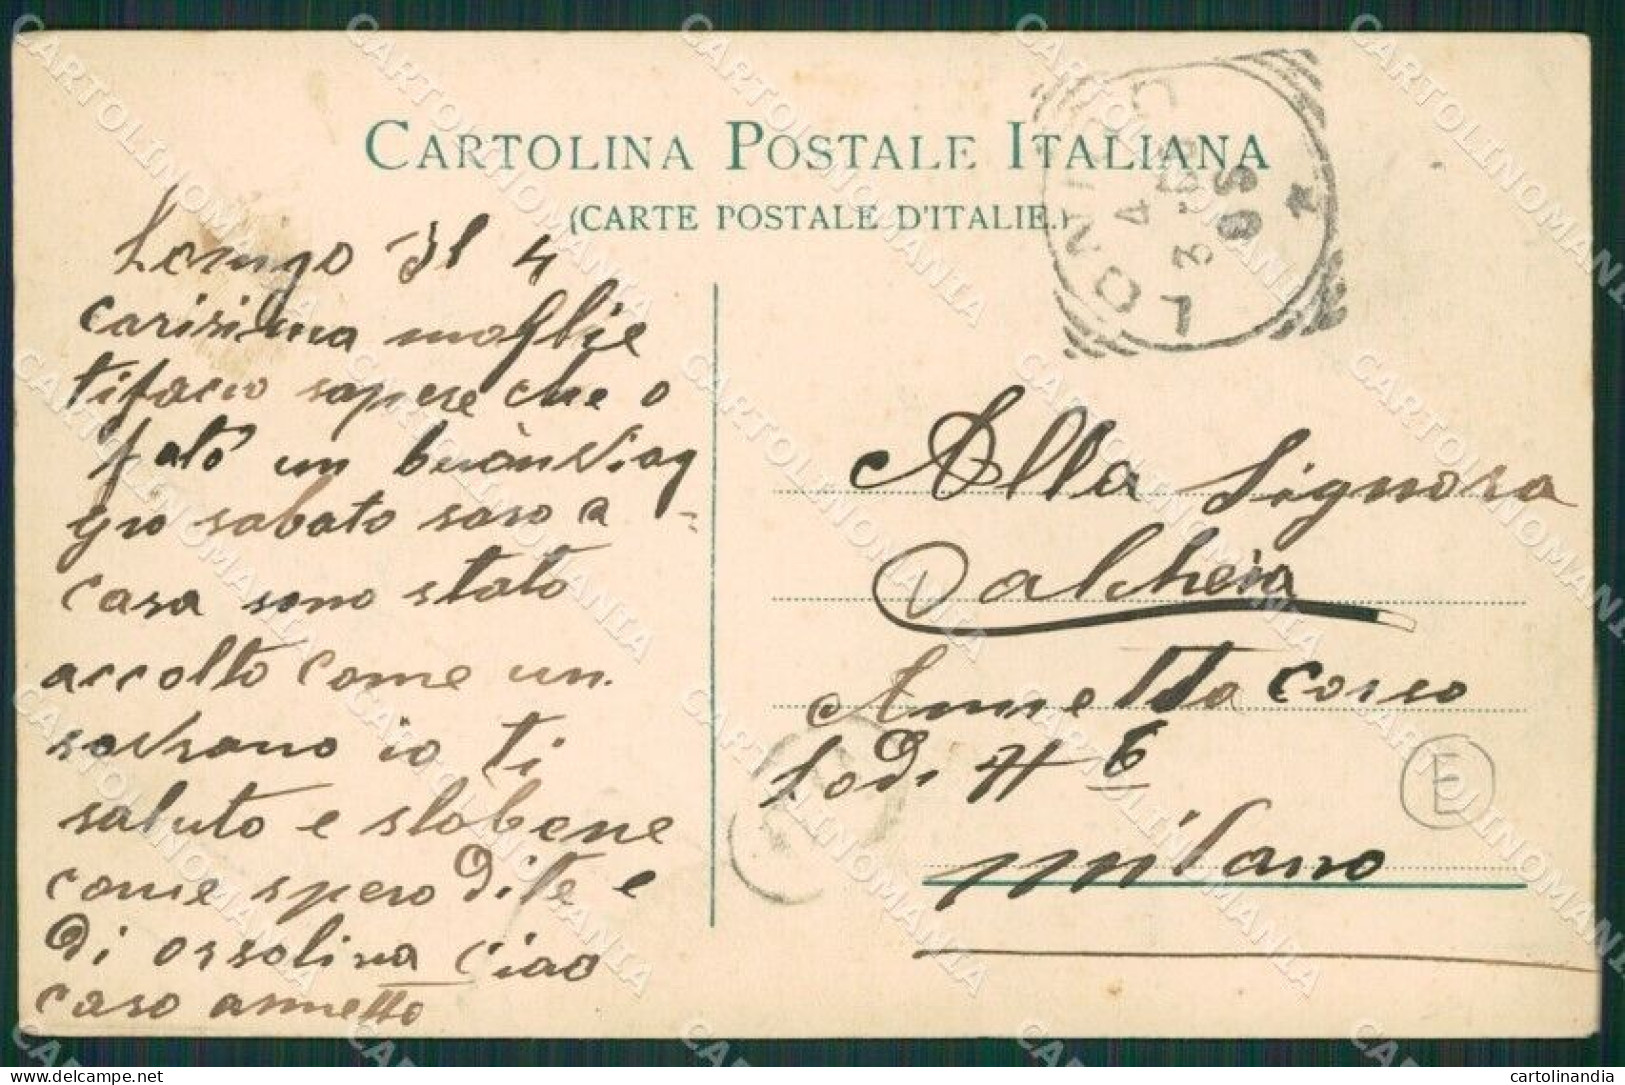 CARTOLINA POSTALE ITALIANA
(CARTE POSTALE D'ITALIE.)
LONIGO
4
3
05
Lonigo Il 4
carisima moglie
tifacio sapere che o
fato un buon viag
gio sabato saro a
casa sono stato
accolto come un
sovrano io ti
saluto e sto bene
come spero di te e
Di orsolina Ciao
caso annetto
Alla Signora
Annetta corso
Lodi N 6
milano
E
CARTOLINOMANIA
delcampe.net
cartolinandia